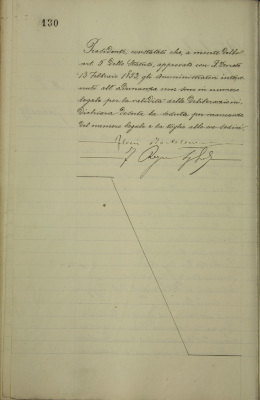 130
Presidente constatato che a mente dello
art. 5 dello Statuto, approvato con R. Decreto
13 Febbraio 1882, gli Amministratori interve-
nuti all'Adunanza non sono in numero
legale per la validità delle Deliberazioni
Dichiara deserta la seduta per mancanza
del numero legale e la toglie alle ore dodici.